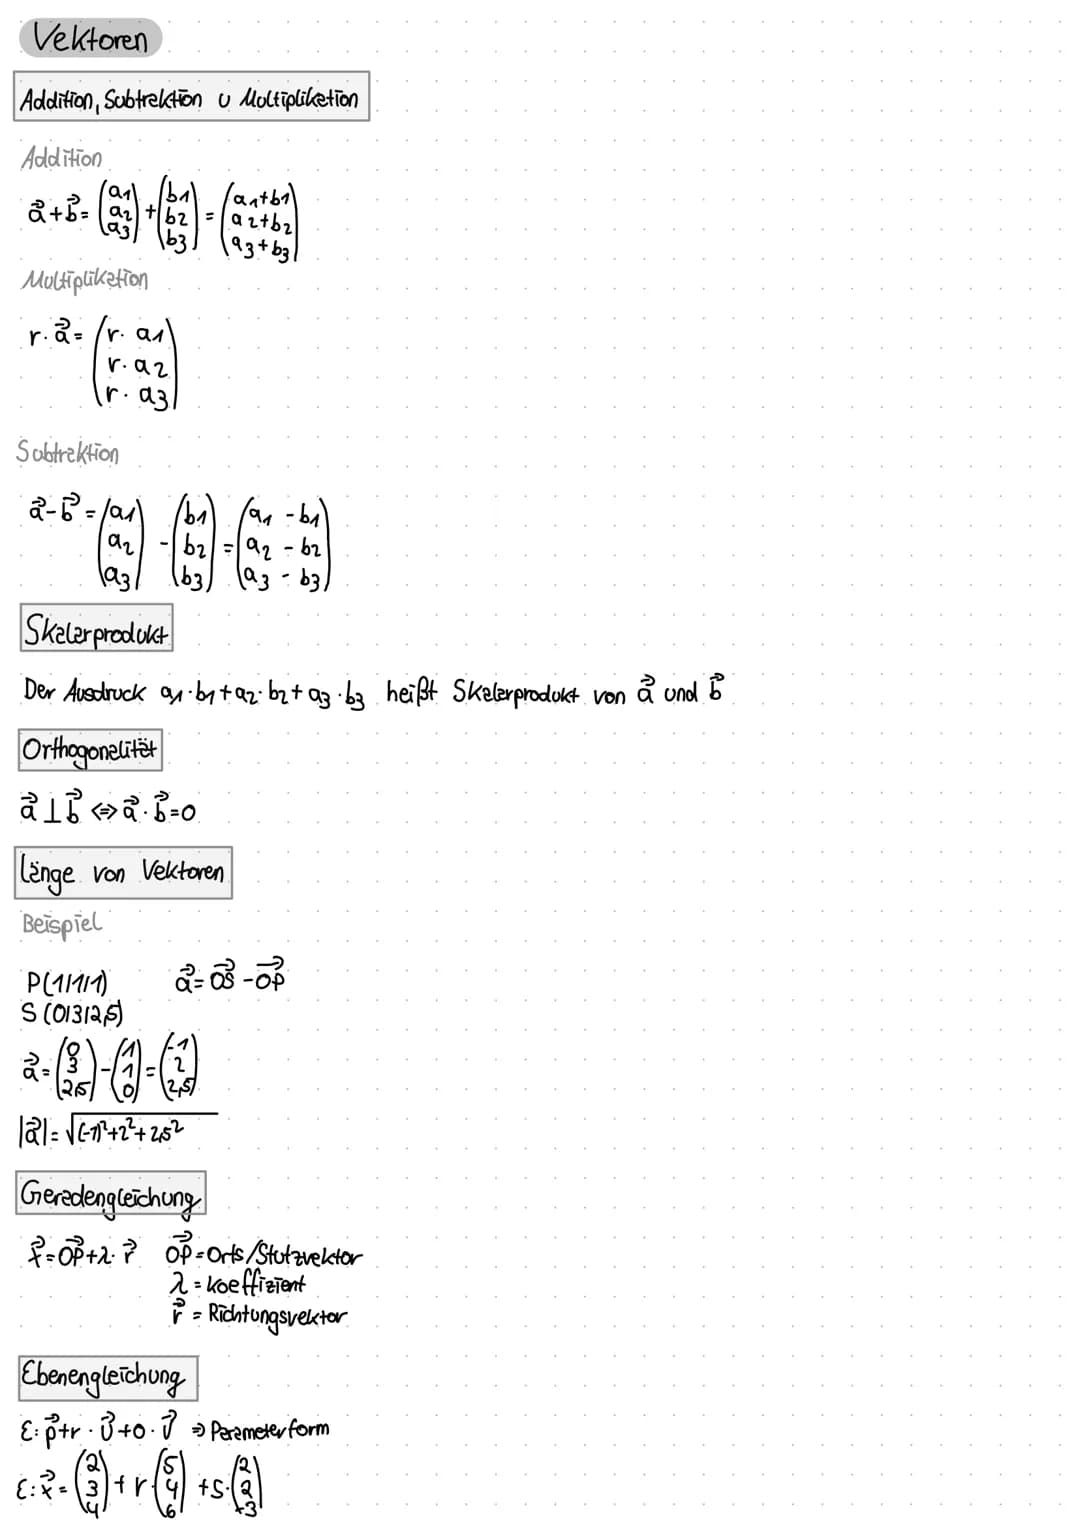 Vektoren
Addition, Subtraktion u Multiplikation
Addition
a⃗+b⃗= (a1 a2 a3) + (b1 b2 b3) = (a1+b1 a2+b2 a3+b3)
Multiplikation
r·a⃗= (r·a1 r·a2 r·a3)
Subtraktion
a⃗-b⃗ = (a1 a2 a3) - (b1 b2 b3) = (a1-b1 a2-b2 a3-b3)
Skalarprodukt
Der Ausdruck a1·b1+a2·b2+a3·b3 heißt Skalarprodukt von a⃗ und b⃗
Orthogonalität
a⃗⊥b⃗ ⇔ a⃗·b⃗=0
Länge von Vektoren
Beispiel
P(1/1/1) a⃗= OS⃗ - OP⃗
S(0/3/2,5)
a⃗= (0 3 2,5) - (1 1 0) = (-1 2 2,5)
|a⃗|= √(-1)²+2²+2,5²
Geradengleichung
x⃗=OP⃗+λ·r⃗ OP⃗=Orts/Stutzvektor
λ=koeffizient
r⃗ = Richtungsvektor
Ebenengleichung
E: p⃗+r·U⃗+o·V⃗ ⇒ Parameterform
E: x⃗= (2 3 4) + r·(5 4 6) +s·(2 2 -3)